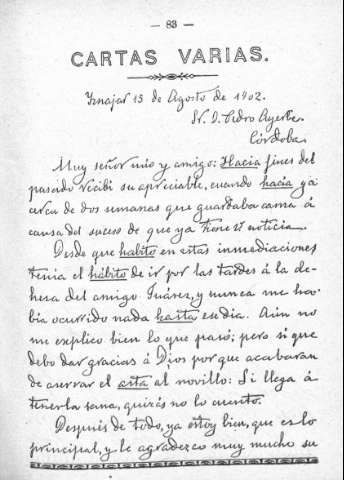 — 83 —
CARTAS VARIAS.
Iznajar 15 de Agosto de 1902.
Sr. D. Pedro Ayerbe.
Córdoba.
Muy señor mio y amigo: Hacia fines del
pasado recibí su apreciable, cuando hacía ya
cerca de dos semanas que guardaba cama á
causa del suceso de que ya tiene V. noticia.
Desde que habito en estas inmediaciones
tenia el hábito de ir por las tardes á la de-
hesa del amigo Juárez, y nunca me ha-
bía ocurrido nada hasta ese dia. Aún no
me explico bien lo que pasó; pero si que
debo dar gracias á Dios por que acabaran
de aserrar el asta al novillo: Si llega á
tenerla sana, quizás no lo cuento.
Después de todo, ya estoy bien, que es lo
principal, y le agradezco muy mucho su